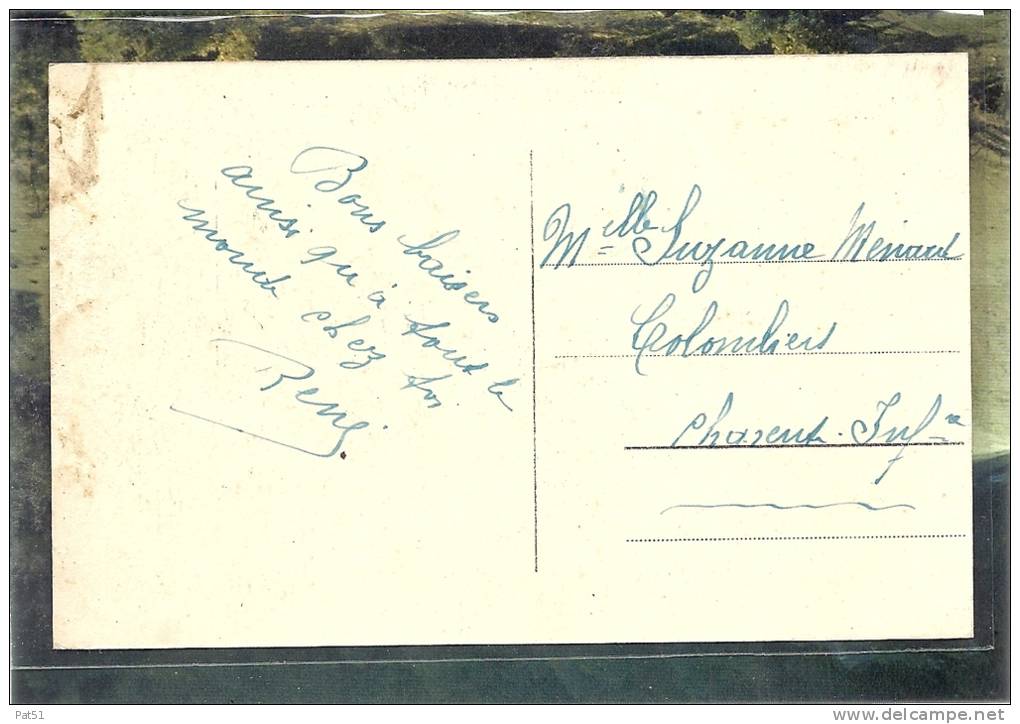 Bons baisers
ainsi qu'à tout le
monde chez toi.
René
Melle Suzanne Menard
Colombiers
Charente Infre
Pat51
www.delcampe.net